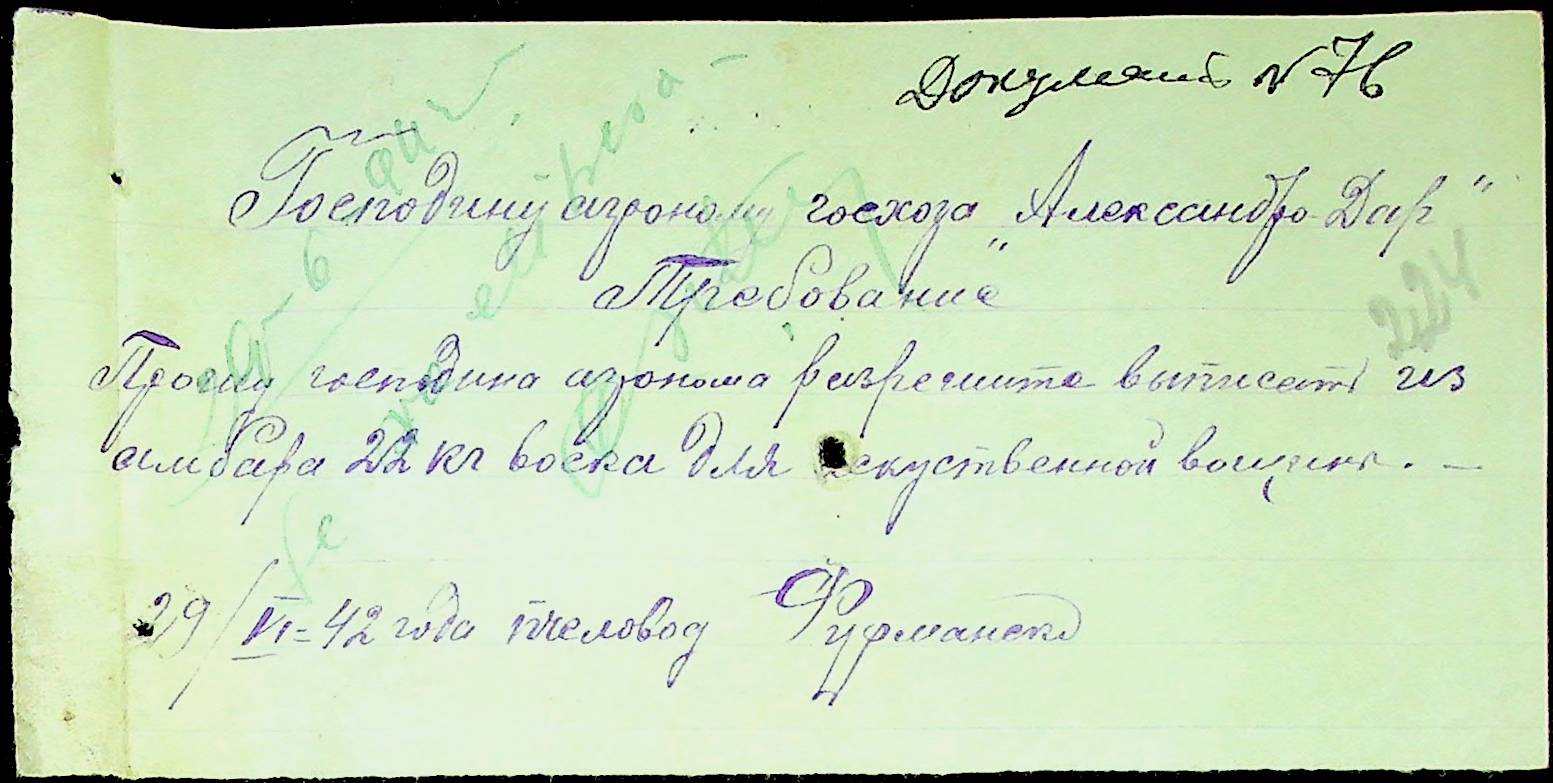 Документ № 76
Господину агроному госхоза „Александро-Дар"
Требование
Прошу господина агронома разрешите выписать из
амбара 22 кг воска для искуственной вощины. –
224
29/VI = 42 года пчеловод